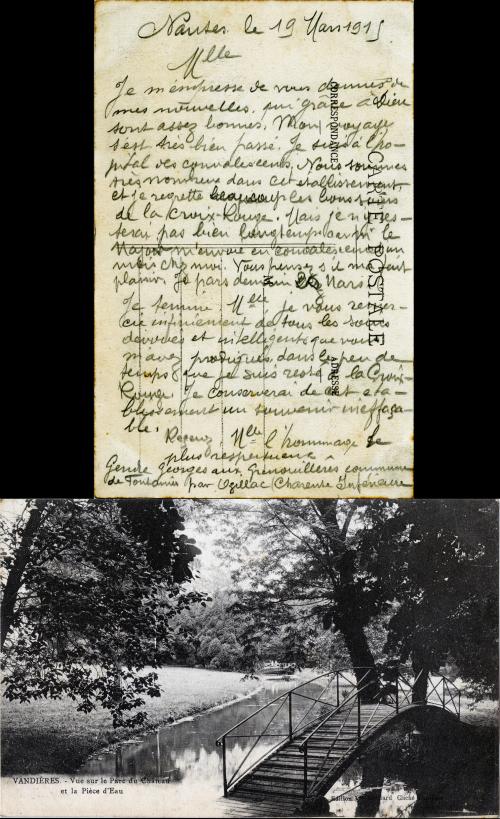 Nantes le 19 Mars 1915
Mlle
Je m'empresse de vous donner de
mes nouvelles, qui grâce à Dieu
sont assez bonnes. Mon voyage
s'est très bien passé. Je suis à l'ho-
pital des convalescents. Nous sommes
très nombreux dans cet etablissement
et je regrette beaucoup les bons soins
de la Croix-Rouge. Mais je n'y res-
terai pas bien longtemps car le
Major m'envoie en convalescence un
mois chez moi. Vous pensez s'il me fait
plaisir. Je pars demain Mars
Je termine Mlle je vous remer-
cie infiniement de tous les soins
devoués et intelligents que vous
m'avez prodigués dans le peu de
temps que je suis resté à la Croix-
Rouge. Je conserverai de cet eta-
blissement un souvenir ineffaça-
ble.
Recevez Mlle l'hommage le
plus respectueux
Gendre Georges aux Grenouillères commune
de par Ozillac Charente Inférieure
CARTE POSTALE
CORRESPONDANCE
ADRESSE
VANDIÈRES. - Vue sur le Parc du Château
et la Pièce d'Eau
Edition Cliché